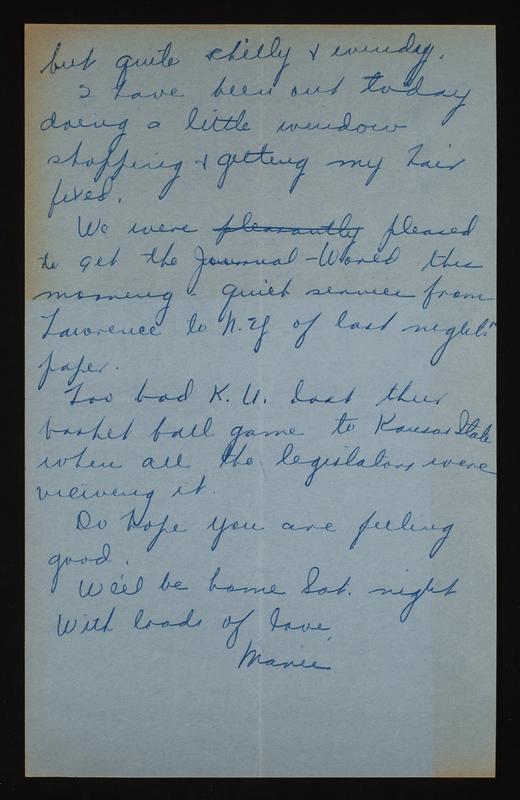 but quite chilly & windy.
I have been out today
doing a little window
shopping & getting my hair
fixed.
We were pleasantly pleased
to get the Journal-World this
morning - quick service from
Lawrence to N.Y of last night's
paper.
Too bad K. U. lost their
basket ball game to Kansas State
when all the legislators were
viewing it.
Do hope you are feeling
good.
We'll be home Sat. night
With loads of love,